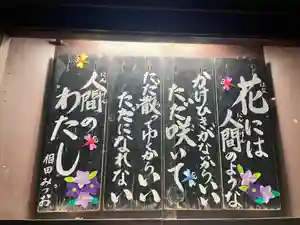 花には
人間のような
かけひきがないからいい
ただ咲いて
ただ散ってゆくからいい
ただになれない
人間のわたし
相田みつを